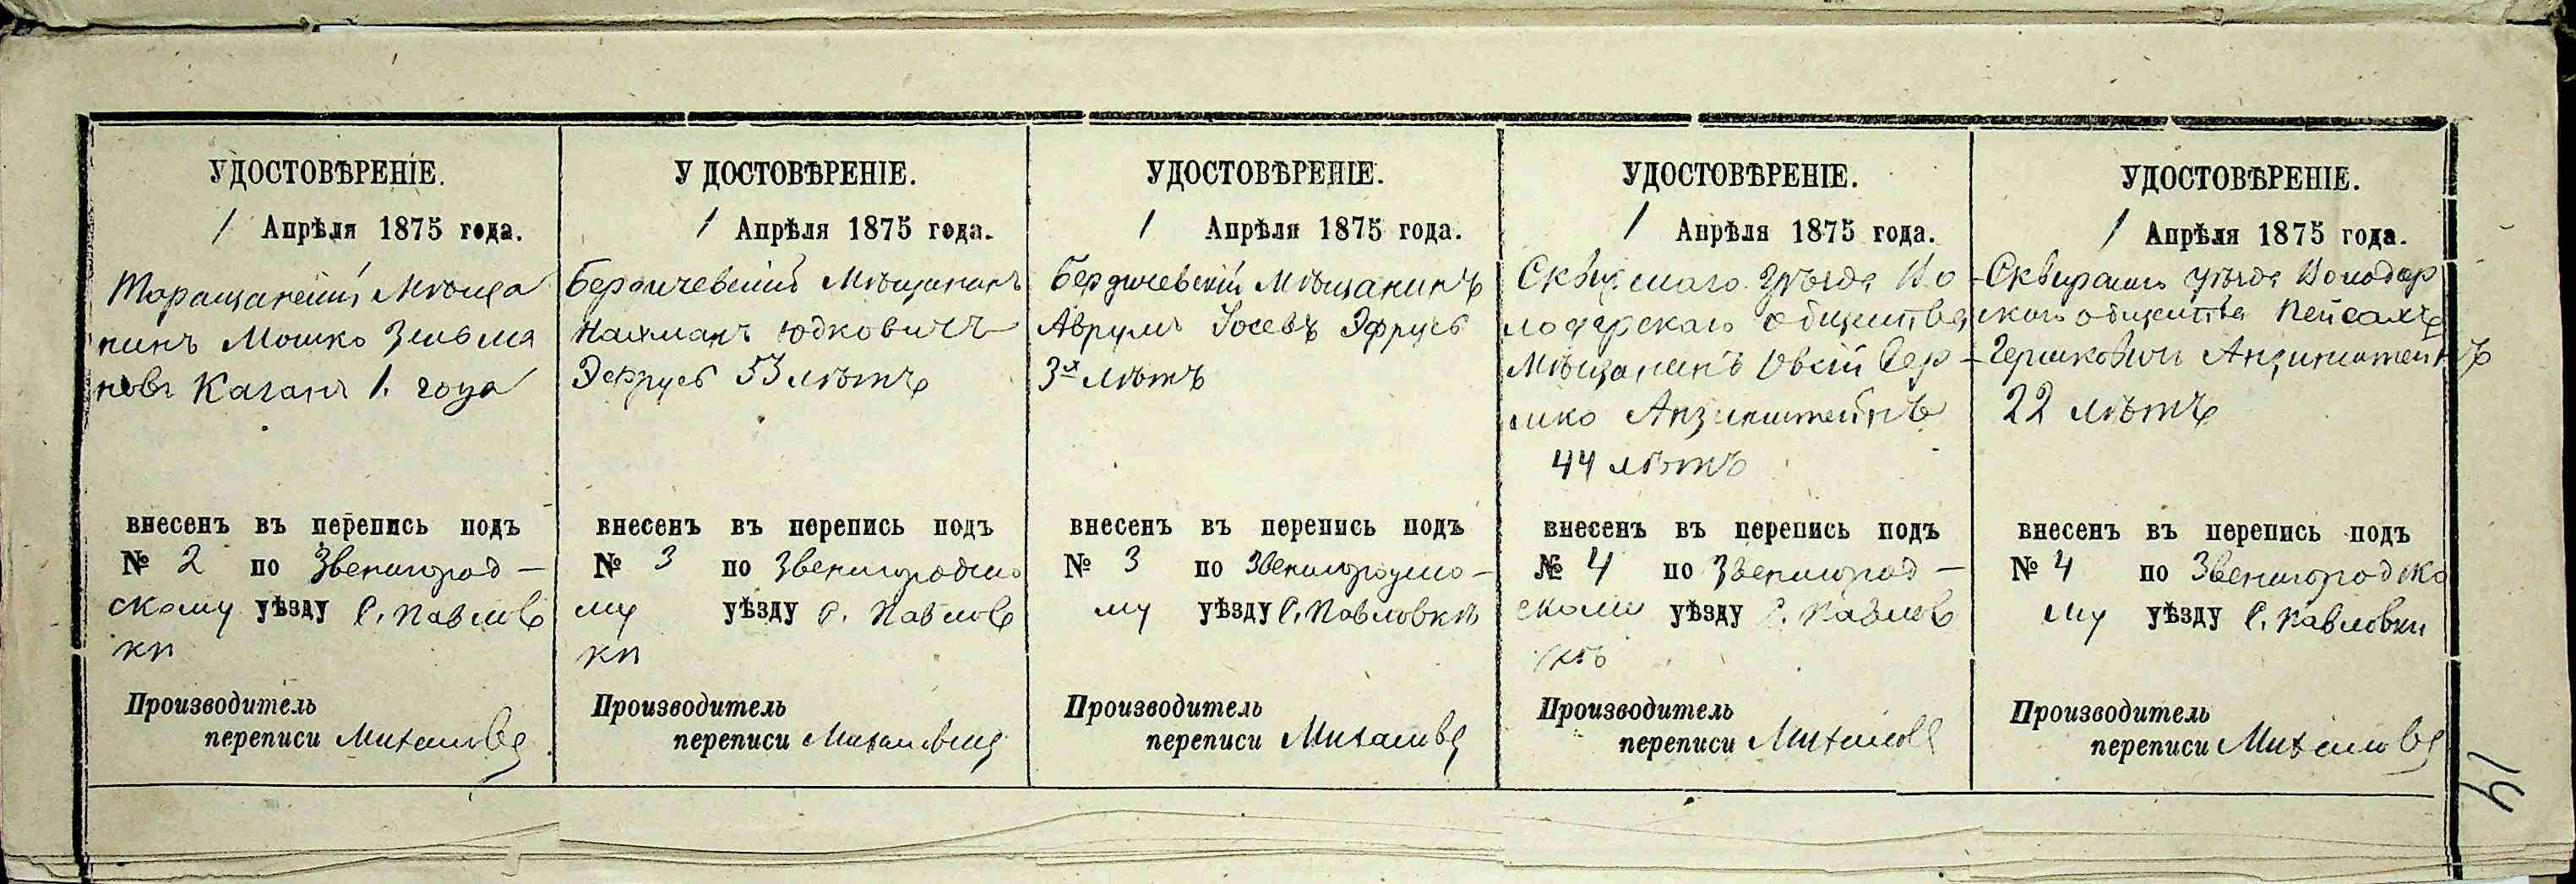 УДОСТОВѢРЕНІЕ.
1 Апрѣля 1875 года.
Таращанскій Мѣща
нинъ Мошко Зельма
новъ Каганъ 1. года
внесенъ въ перепись подъ
№ 2 по Звенигород –
скому уѣзду С. Павлов
ки
Производитель
переписи
У ДОСТОВѢРЕНІЕ.
1 Апрѣля 1875 года.
Бердичевскій Мѣщанинъ
Нахманъ Юдковичъ
Эфрусъ 53 лѣтъ
внесенъ въ перепись подъ
№ 3 по Звенигородско
му уѣзду С. Павлов
ки
Производитель
переписи
УДОСТОВѢРЕНІЕ.
1 Апрѣля 1875 года.
Бердичевскій Мѣщанинъ
Аврумъ Іосевъ Эфрусъ
3х лѣтъ
внесенъ въ перепись подъ
№ 3 по Звенигородско –
му уѣзду С. Павловкѣ
Производитель
переписи
УДОСТОВѢРЕНІЕ.
1 Апрѣля 1875 года.
Сквирскаго уѣзда Во –
лодарскаго общества
Мѣщанинъ –
шко Анзинштейнъ
44 лѣтъ
внесенъ въ перепись подъ
№ 4 по Звенигород –
скому уѣзду С. Павлов
кѣ
Производитель
переписи
УДОСТОВѢРЕНІЕ.
1 Апрѣля 1875 года.
Сквирскаго уѣзда Володар
скаго общества Пейсахъ
Гершковичъ Анзинштейнъ
22 лѣтъ
внесенъ въ перепись подъ
№ 4 по Звенигородско
му уѣзду С. Павловки
Производитель
переписи